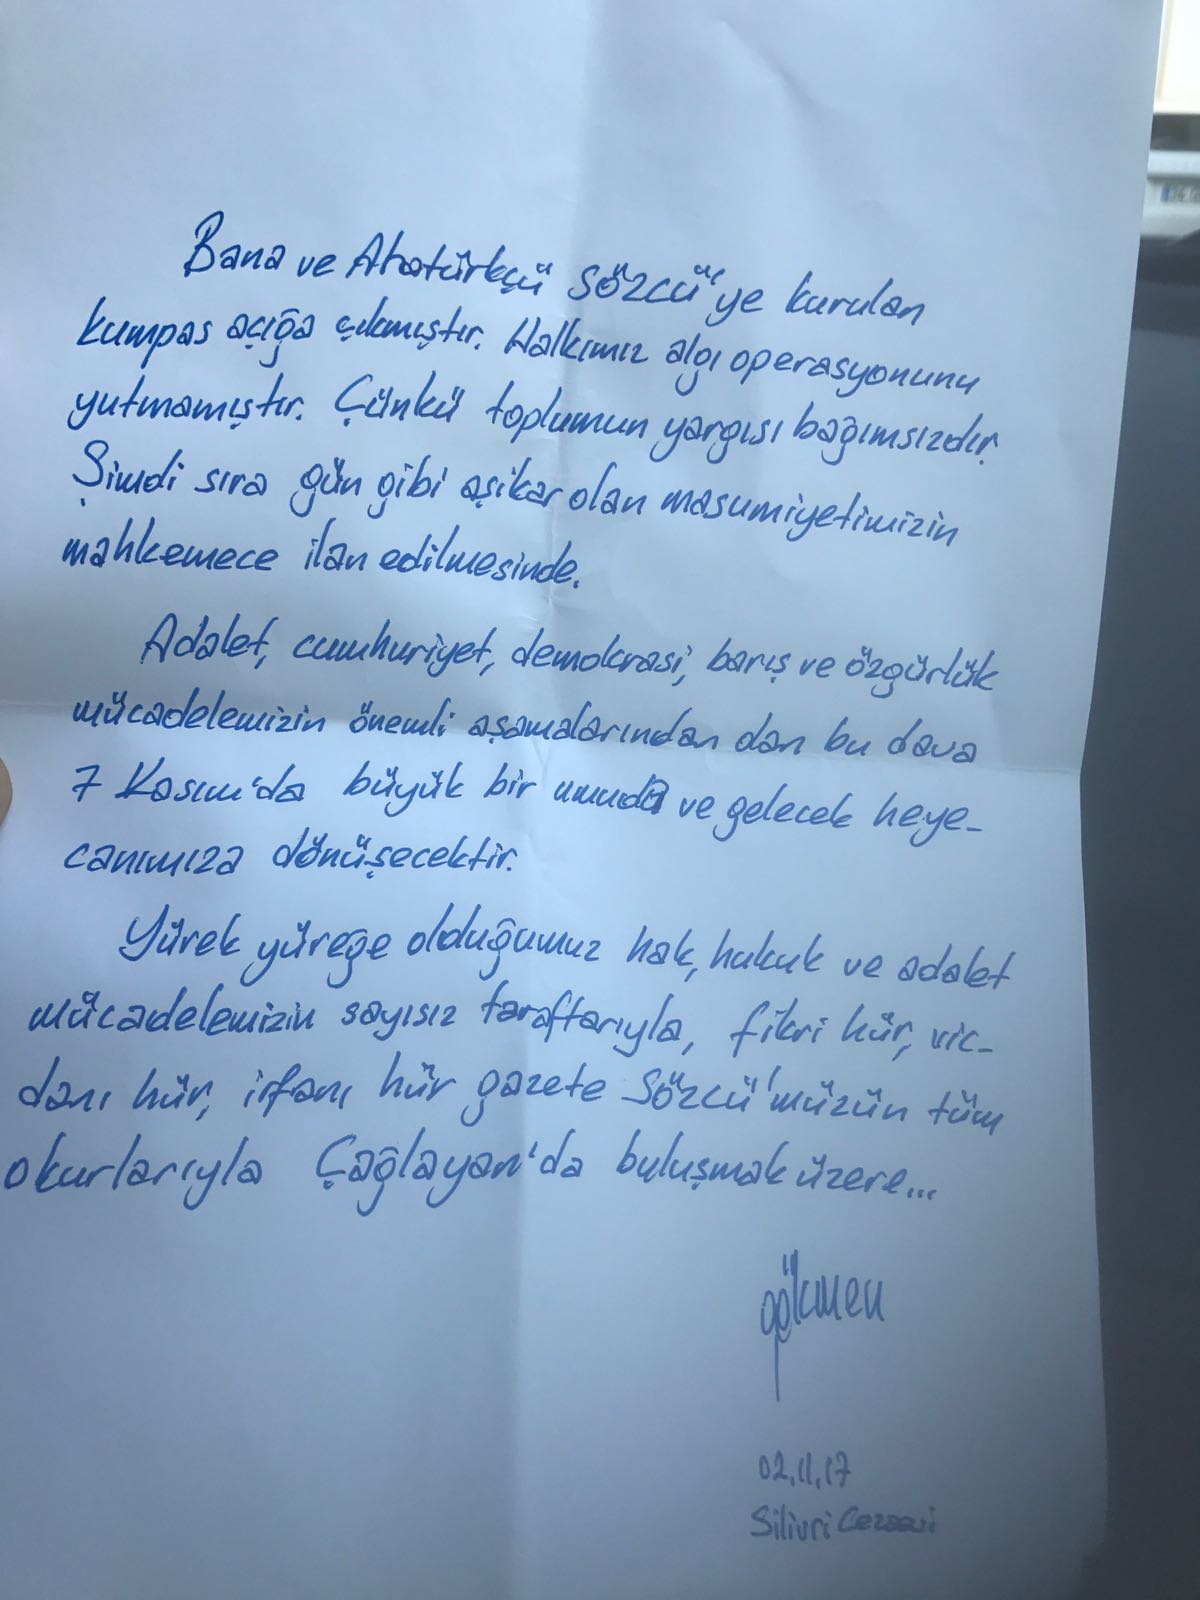 Bana ve Atatürkçü SÖZCÜ'ye kurulan
kumpas açığa çıkmıştır. Halkımız algı operasyonunu
yutmamıştır. Çünkü toplumun yargısı bağımsızdır.
Şimdi sıra gün gibi aşikar olan masumiyetimizin
mahkemece ilan edilmesinde.
Adalet, cumhuriyet, demokrasi, barış ve özgürlük
mücadelemizin önemli aşamalarından dan bu dava
7 Kasım'da büyük bir umuda ve gelecek heye-
canımıza dönüşecektir.
Yürek yüreğe olduğumuz hak, hukuk ve adalet
mücadelemizin sayısız taraftarıyla, fikri hür, vic-
danı hür, irfanı hür gazete SÖZCÜ'müzün tüm
okurlarıyla Çağlayan'da buluşmak üzere...
gökmen
02.11.17
Silivri Cezaevi